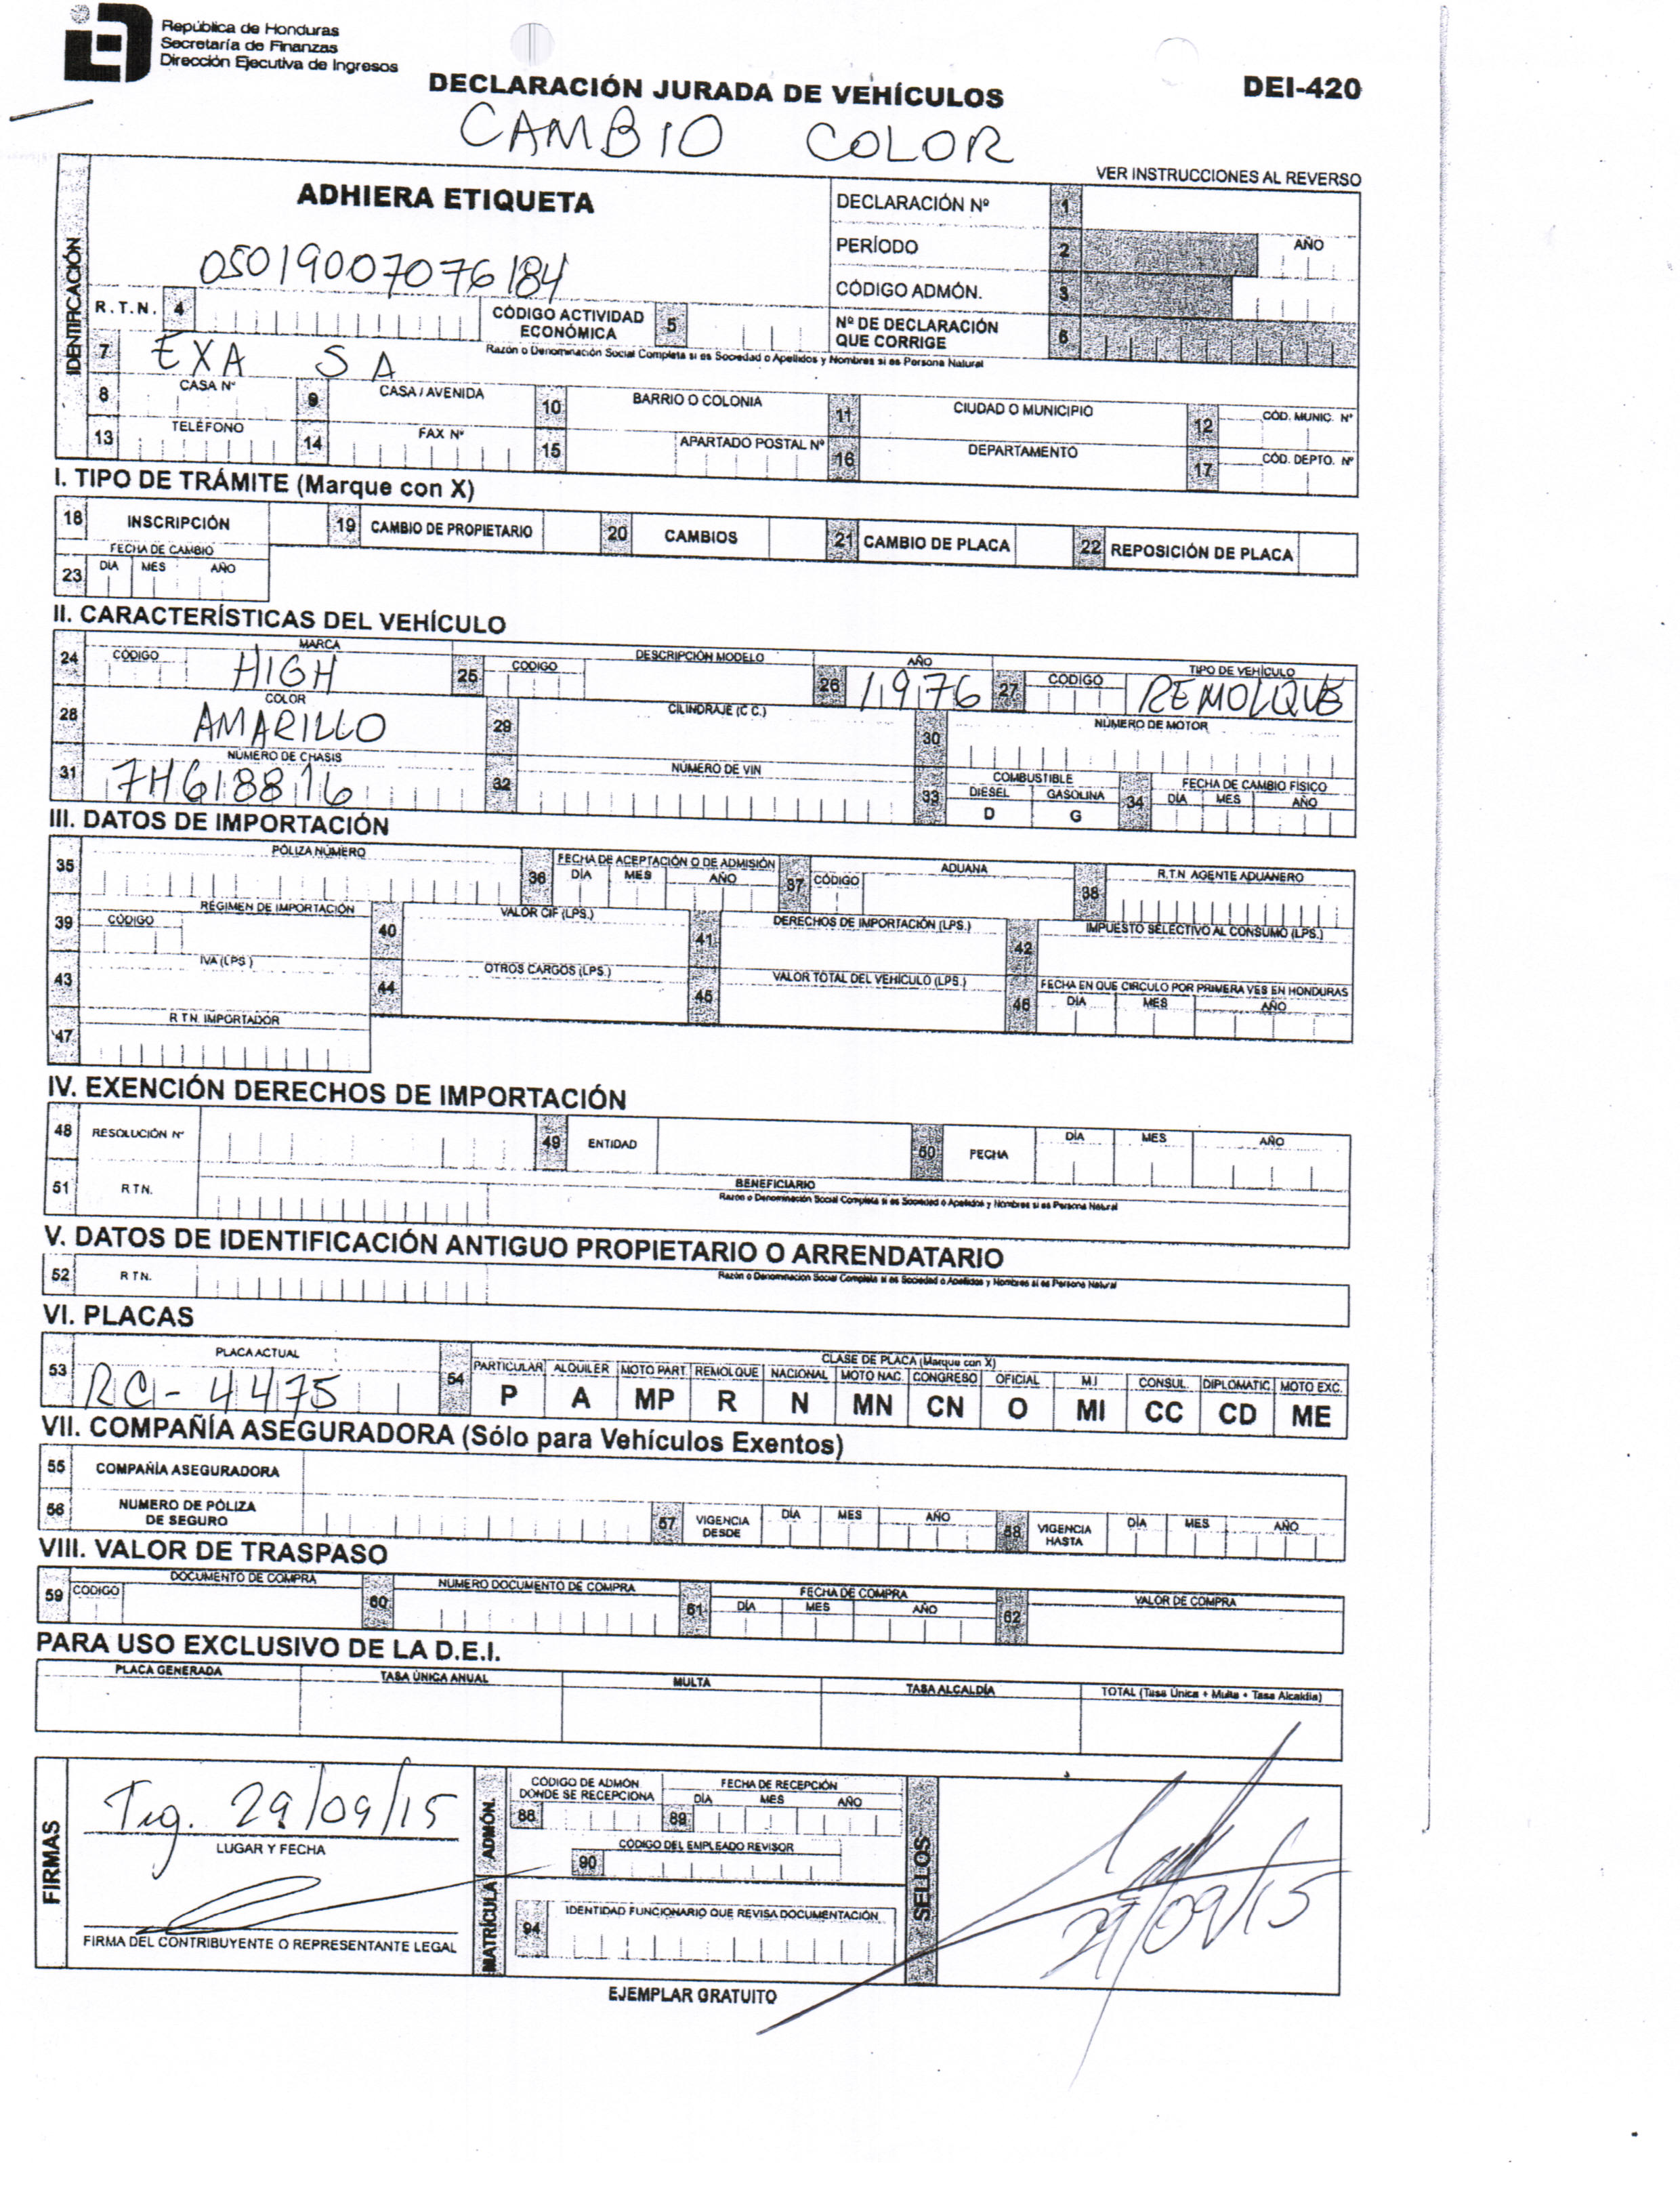 República de Honduras
Secretaría de Finanzas
Dirección Ejecutiva de Ingresos
DECLARACIÓN JURADA DE VEHÍCULOS
DEI-420
CAMBIO COLOR
VER INSTRUCCIONES AL REVERSO
IDENTIFICACIÓN
ADHIERA ETIQUETA
DECLARACIÓN Nº 1
05019007076184
PERÍODO 2 AÑO
CÓDIGO ADMÓN. 3
R.T.N. 4 CÓDIGO ACTIVIDAD ECONÓMICA 5 Nº DE DECLARACIÓN QUE CORRIGE 6
7 EXA S A Razón o Denominación Social Completa si es Sociedad o Apellidos y Nombres si es Persona Natural
8 CASA Nº 9 CASA / AVENIDA 10 BARRIO O COLONIA 11 CIUDAD O MUNICIPIO 12 CÓD. MUNIC. Nº
13 TELÉFONO 14 FAX Nº 15 APARTADO POSTAL Nº 16 DEPARTAMENTO 17 CÓD. DEPTO. Nº
I. TIPO DE TRÁMITE (Marque con X)
18 INSCRIPCIÓN 19 CAMBIO DE PROPIETARIO 20 CAMBIOS 21 CAMBIO DE PLACA 22 REPOSICIÓN DE PLACA
FECHA DE CAMBIO
23 DÍA MES AÑO
II. CARACTERÍSTICAS DEL VEHÍCULO
24 CÓDIGO MARCA HIGH 25 CODIGO DESCRIPCIÓN MODELO 26 AÑO 1976 27 CODIGO TIPO DE VEHÍCULO REMOLQUE
28 COLOR AMARILLO 29 CILINDRAJE (C.C.) 30 NÚMERO DE MOTOR
31 NÚMERO DE CHASIS 7H618816 32 NÚMERO DE VIN 33 COMBUSTIBLE DIESEL D GASOLINA G 34 FECHA DE CAMBIO FÍSICO DÍA MES AÑO
III. DATOS DE IMPORTACIÓN
35 PÓLIZA NÚMERO 36 FECHA DE ACEPTACIÓN O DE ADMISIÓN DÍA MES AÑO 37 CÓDIGO ADUANA 38 R.T.N AGENTE ADUANERO
39 CÓDIGO RÉGIMEN DE IMPORTACIÓN 40 VALOR CIF (LPS.) 41 DERECHOS DE IMPORTACIÓN (LPS.) 42 IMPUESTO SELECTIVO AL CONSUMO (LPS.)
43 IVA (LPS.) 44 OTROS CARGOS (LPS.) 45 VALOR TOTAL DEL VEHÍCULO (LPS.) 46 FECHA EN QUE CIRCULO POR PRIMERA VES EN HONDURAS DÍA MES AÑO
47 R.T.N. IMPORTADOR
IV. EXENCIÓN DERECHOS DE IMPORTACIÓN
48 RESOLUCIÓN Nº 49 ENTIDAD 50 FECHA DÍA MES AÑO
51 RTN. BENEFICIARIO
Razón o Denominación Social Completa si es Sociedad o Apellidos y Nombres si es Persona Natural
V. DATOS DE IDENTIFICACIÓN ANTIGUO PROPIETARIO O ARRENDATARIO
52 RTN. Razón o Denominación Social Completa si es Sociedad o Apellidos y Nombres si es Persona Natural
VI. PLACAS
53 PLACA ACTUAL RC-4475 54 CLASE DE PLACA (Marque con X)
PARTICULAR ALQUILER MOTO PART. REMOLQUE NACIONAL MOTO NAC. CONGRESO OFICIAL M.I CONSUL. DIPLOMATIC. MOTO EXC.
P A MP R N MN CN O MI CC CD ME
VII. COMPAÑÍA ASEGURADORA (Sólo para Vehículos Exentos)
55 COMPAÑÍA ASEGURADORA
56 NUMERO DE PÓLIZA DE SEGURO 57 VIGENCIA DESDE DÍA MES AÑO 58 VIGENCIA HASTA DÍA MES AÑO
VIII. VALOR DE TRASPASO
59 CODIGO DOCUMENTO DE COMPRA 60 NUMERO DOCUMENTO DE COMPRA 61 FECHA DE COMPRA DÍA MES AÑO 62 VALOR DE COMPRA
PARA USO EXCLUSIVO DE LA D.E.I.
PLACA GENERADA TASA ÚNICA ANUAL MULTA TASA ALCALDÍA TOTAL (Tasa Única + Multa + Tasa Alcaldía)
FIRMAS
Tig. 29/09/15
LUGAR Y FECHA
FIRMA DEL CONTRIBUYENTE O REPRESENTANTE LEGAL
MATRÍCULA ADMÓN.
CÓDIGO DE ADMÓN DONDE SE RECEPCIONA FECHA DE RECEPCIÓN
88 89 DÍA MES AÑO
CÓDIGO DEL EMPLEADO REVISOR
90
94 IDENTIDAD FUNCIONARIO QUE REVISA DOCUMENTACIÓN
SELLOS
29/09/15
EJEMPLAR GRATUITO